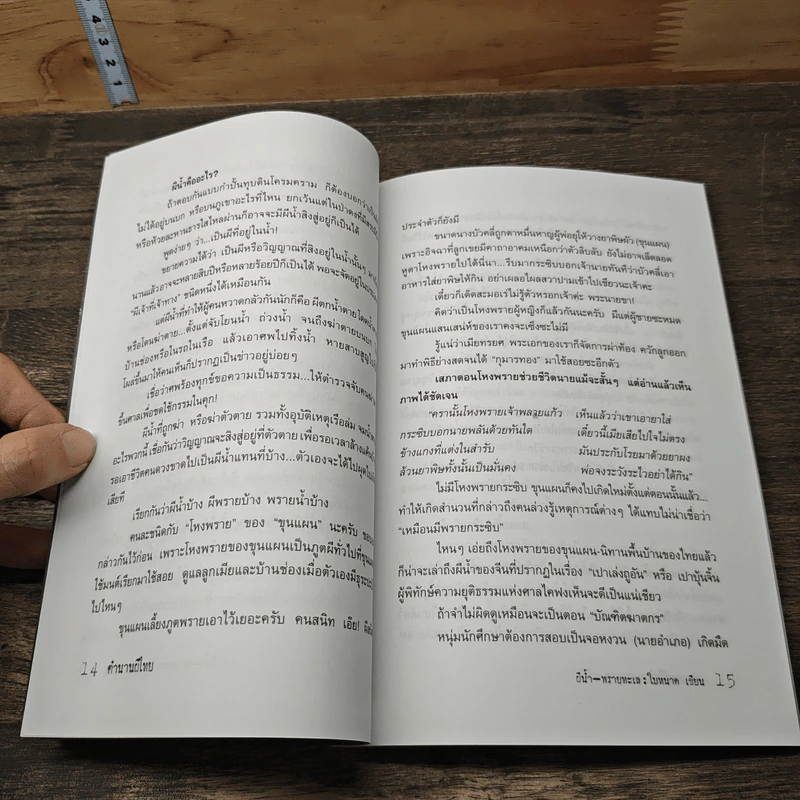 4
3
2
1
ผีน้ำคืออะไร?
ถ้าตอบกันแบบกำปั้นทุบดินโครมคราม ก็ต้องบอกว่าเป็นผี
ไม่ได้อยู่บนบก หรือบนภูเขาอะไรที่ไหน ยกเว้นแต่ในป่าดงที่มี
หรือห้วยละหานธารใสไหลผ่านก็อาจจะมีผีน้ำสิงสู่อยู่ก็เป็นได้
พูดง่ายๆ ว่า...เป็นผีที่อยู่ในน้ำ!
ขยายความได้ว่า เป็นผีหรือวิญญาณที่สิงอยู่ในน้ำนั้นๆ
นานแล้วอาจจะหลายสิบปีหรือหลายร้อยปีก็เป็นได้ พอจะจัดอยู่ใน
"ผีเจ้าที่เจ้าทาง" ชนิดหนึ่งได้เหมือนกัน
แต่ผีน้ำที่ทำให้ผู้คนหวาดกลัวกันนักก็คือ ผีตกน้ำตายโดย
หรือโดนฆ่าตาย...ตั้งแต่จับโยนน้ำ ถ่วงน้ำ จนถึงฆ่าตายบนบก
บ้านช่องหรือในรถในเรือ แล้วเอาศพไปทิ้งน้ำ หายสาบสูญไป
โผล่ขึ้นมาให้คนเห็นก็ปรากฏเป็นข่าวอยู่บ่อยๆ
เชื่อว่าศพร้องทุกข์ขอความเป็นธรรม...ให้ตำรวจจับคน
ขึ้นศาลเพื่อชดใช้กรรมในคุก!
ผีน้ำที่ถูกฆ่า หรือฆ่าตัวตาย รวมทั้งอุบัติเหตุเรือล่ม
อะไรพวกนี้ เชื่อกันว่าวิญญาณจะสิงสู่อยู่ที่ตัวตาย เพื่อรอเวลาล้าง
รอเอาชีวิตคนดวงขาดไปเป็นผีน้ำแทนที่บ้าง...ตัวเองจะได้ไปผุดไป
เสียที
เรียกกันว่าผีน้ำบ้าง ผีพรายบ้าง พรายน้ำบ้าง
คนละชนิดกับ "โหงพราย" ของ "ขุนแผน" นะครับ
กล่าวกันไว้ก่อน เพราะโหงพรายของขุนแผนเป็นภูตผีทั่วไปที่ขุนแผน
ใช้มนต์เรียกมาใช้สอย ดูแลลูกเมียและบ้านช่องเมื่อตัวเองมีธุระ
ไปไหนๆ
ขุนแผนเลี้ยงภูตพรายเอาไว้เยอะครับ คนสนิท เอ๊ย!
14 ตำนานผีไทย
ประจำตัวก็ยังมี
ขนาดนางบัวคลี่ถูกตาหมื่นหาญผู้พ่อยุให้วางยาพิษผัว (ขุนแผน)
เพราะอิจฉาที่ลูกเขยมีคาถาอาคมเหนือกว่าตัวลิบลับ ยังไม่อาจเล็ดลอด
หูตาโหงพรายไปได้นี่นา...รีบมากระซิบบอกเจ้านายทันทีว่าบัวคลี่เอา
อาหารใส่ยาพิษให้กิน อย่าเผลอโผลสวาปามเข้าไปเชียวนะเจ้าคะ
เดี๋ยวก็เด๊ดสะมอเร่ไม่รู้ตัวหรอกเจ้าค่ะ พระนายขา!
คิดว่าเป็นโหงพรายผู้หญิงก็แล้วกันนะครับ มีแต่ผู้ชายซะหมด
ขุนแผนแสนเสน่ห์ของเราคงจะเซ็งซะไม่มี
รู้แน่ว่าเมียทรยศ พระเอกของเราก็จัดการผ่าท้อง ควักลูกออก
มาทำพิธีย่างสดจนได้ "กุมารทอง" มาใช้สอยซะอีกตัว
เสภาตอนโหงพรายช่วยชีวิตนายแม้จะสั้นๆ แต่อ่านแล้วเห็น
ภาพได้ชัดเจน
"ครานั้นโหงพรายเจ้าพลายแก้ว เห็นแล้วว่าเขาเอายาใส่
กระซิบบอกนายพลันด้วยทันใด เดี๋ยวนี้เมียเสียไปใจไม่ตรง
ข้างแกงที่แต่งในสำรับ มันประกับโรยมาด้วยยาผง
ล้วนยาพิษทั้งนั้นเป็นมั่นคง พ่อจงระวังระไวอย่าได้กิน"
ไม่มีโหงพรายกระซิบ ขุนแผนก็คงไปเกิดใหม่ตั้งแต่ตอนนั้นแล้ว...
ทำให้เกิดสำนวนที่กล่าวถึงคนล่วงรู้เหตุการณ์ต่างๆ ได้แทบไม่น่าเชื่อว่า
"เหมือนมีพรายกระซิบ"
ไหนๆ เอ่ยถึงโหงพรายของขุนแผน-นิทานพื้นบ้านของไทยแล้ว
ก็น่าจะเล่าถึงผีน้ำของจีนที่ปรากฏในเรื่อง "เปาเล่งถูอั้น" หรือ เปาบุ้นจิ้น
ผู้พิทักษ์ความยุติธรรมแห่งศาลไคฟงเห็นจะดีเป็นแน่เชียว
ถ้าจำไม่ผิดดูเหมือนจะเป็นตอน "บัณฑิตฆาตกร"
หนุ่มนักศึกษาต้องการสอบเป็นจอหงวน (นายอำเภอ) เกิดมืด
ผีน้ำ–พรายทะเล : ใบหนาด เขียน 15